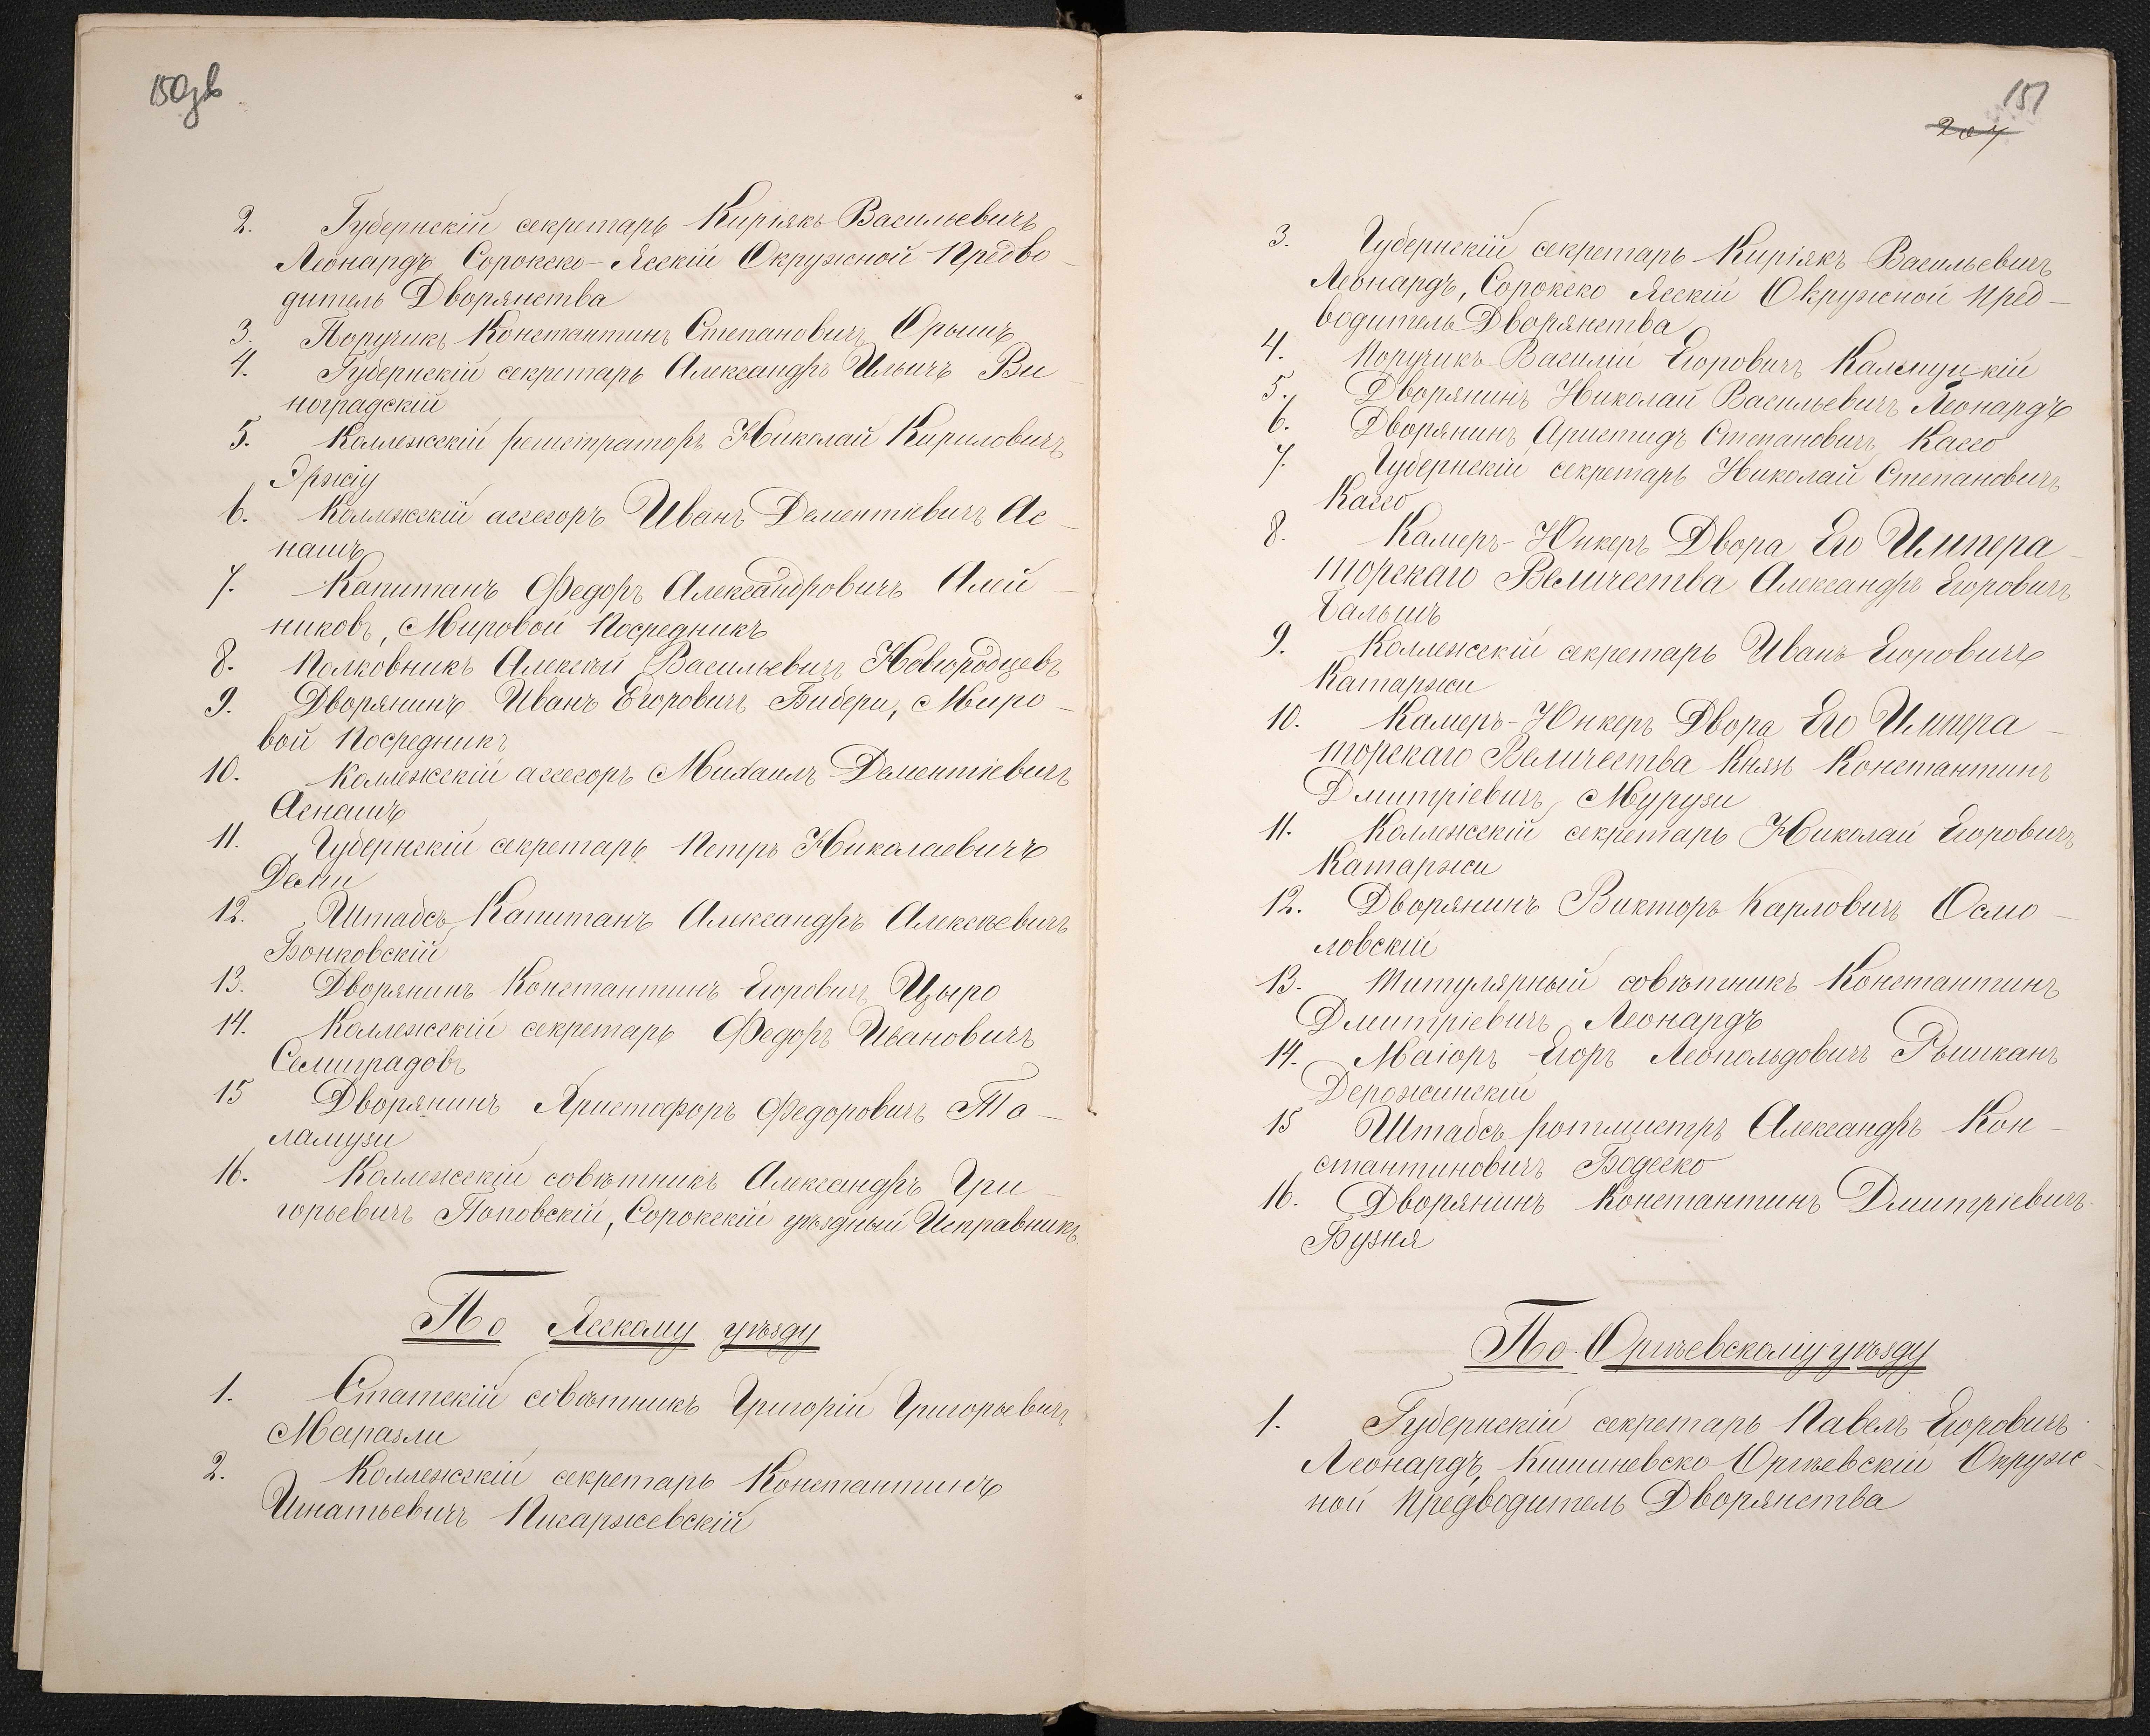 2. Губернскій секретарь Киріякъ Васильевичъ
Леонардъ Сорокско-Ясскій Окружной Предво-
дитель Дворянства
3. Поручикъ Константинъ Степановичъ Орышъ
4. Губернскій секретарь Александръ Ильичъ Ви-
ноградскій
5. Коллежскій регистраторъ Николай Кириловичъ
Эржіу
6. Коллежскій ассесоръ Иванъ Дементіевичъ Ас-
нашъ
7. Капитанъ Федоръ Александровичъ Алей-
никовъ, Мировой Посредникъ
8. Полковникъ Алексѣй Васильевичъ Новгородцевъ
9. Дворянинъ Иванъ Егоровичъ Бибери, Миро-
вой Посредникъ
10. Коллежскій ассесоръ Михаилъ Дементіевичъ
Аснашъ
11. Губернскій секретарь Петръ Николаевичъ
Десми
12. Штабсъ Капитанъ Александръ Алексѣевичъ
Бонковскій
13. Дворянинъ Константинъ Егоровичъ Цыро
14. Коллежскій секретарь Федоръ Ивановичъ
Семиградовъ
15 Дворянинъ Христофоръ Федоровичъ То-
ламузи
16. Коллежскій совѣтникъ Александръ Гри-
горьевичъ Поповскій, Сорокскій уѣздный Исправникъ.
По Ясскому уѣзду
1. Статскій совѣтникъ Григорій Григорьевичъ
Маразли
2. Коллежскій секретарь Константинъ
Игнатьевичъ Писаржевскій
151
207
3. Губернскій секретарь Киріякъ Васильевичъ
Леонардъ, Сорокско Ясскій Окружной Пред-
водитель Дворянства
4. Поручикъ Василій Егоровичъ Калмуцкій
5. Дворянинъ Николай Васильевичъ Леонардъ
6. Дворянинъ Аристидъ Степановичъ Кассо
7. Губернскій секретарь Николай Степановичъ
Кассо
8. Камеръ-Юнкеръ Двора Его Импера-
торскаго Величества Александръ Егоровичъ
Бальшъ
9. Коллежскій секретарь Иванъ Егоровичъ
Катаржи
10. Камеръ-Юнкеръ Двора Его Импера-
торскаго Величества Князь Константинъ
Дмитріевичъ Мурузи
11. Коллежскій секретарь Николай Егоровичъ
Катаржи
12. Дворянинъ Викторъ Карловичъ Осмо-
ловскій
13. Титулярный совѣтникъ Константинъ
Дмитріевичъ Леонардъ
14. Маіоръ Егоръ Леопольдовичъ Рышканъ
Дерожинскій
15 Штабсъ ротмистръ Александръ Кон-
стантиновичъ Бодеско
16. Дворянинъ Константинъ Дмитріевичъ
Бузня
По Оргѣевскому уѣзду
1. Губернскій секретарь Павелъ Егоровичъ
Леонардъ, Кишиневско Оргѣевскій Окруж-
ной Предводитель Дворянства